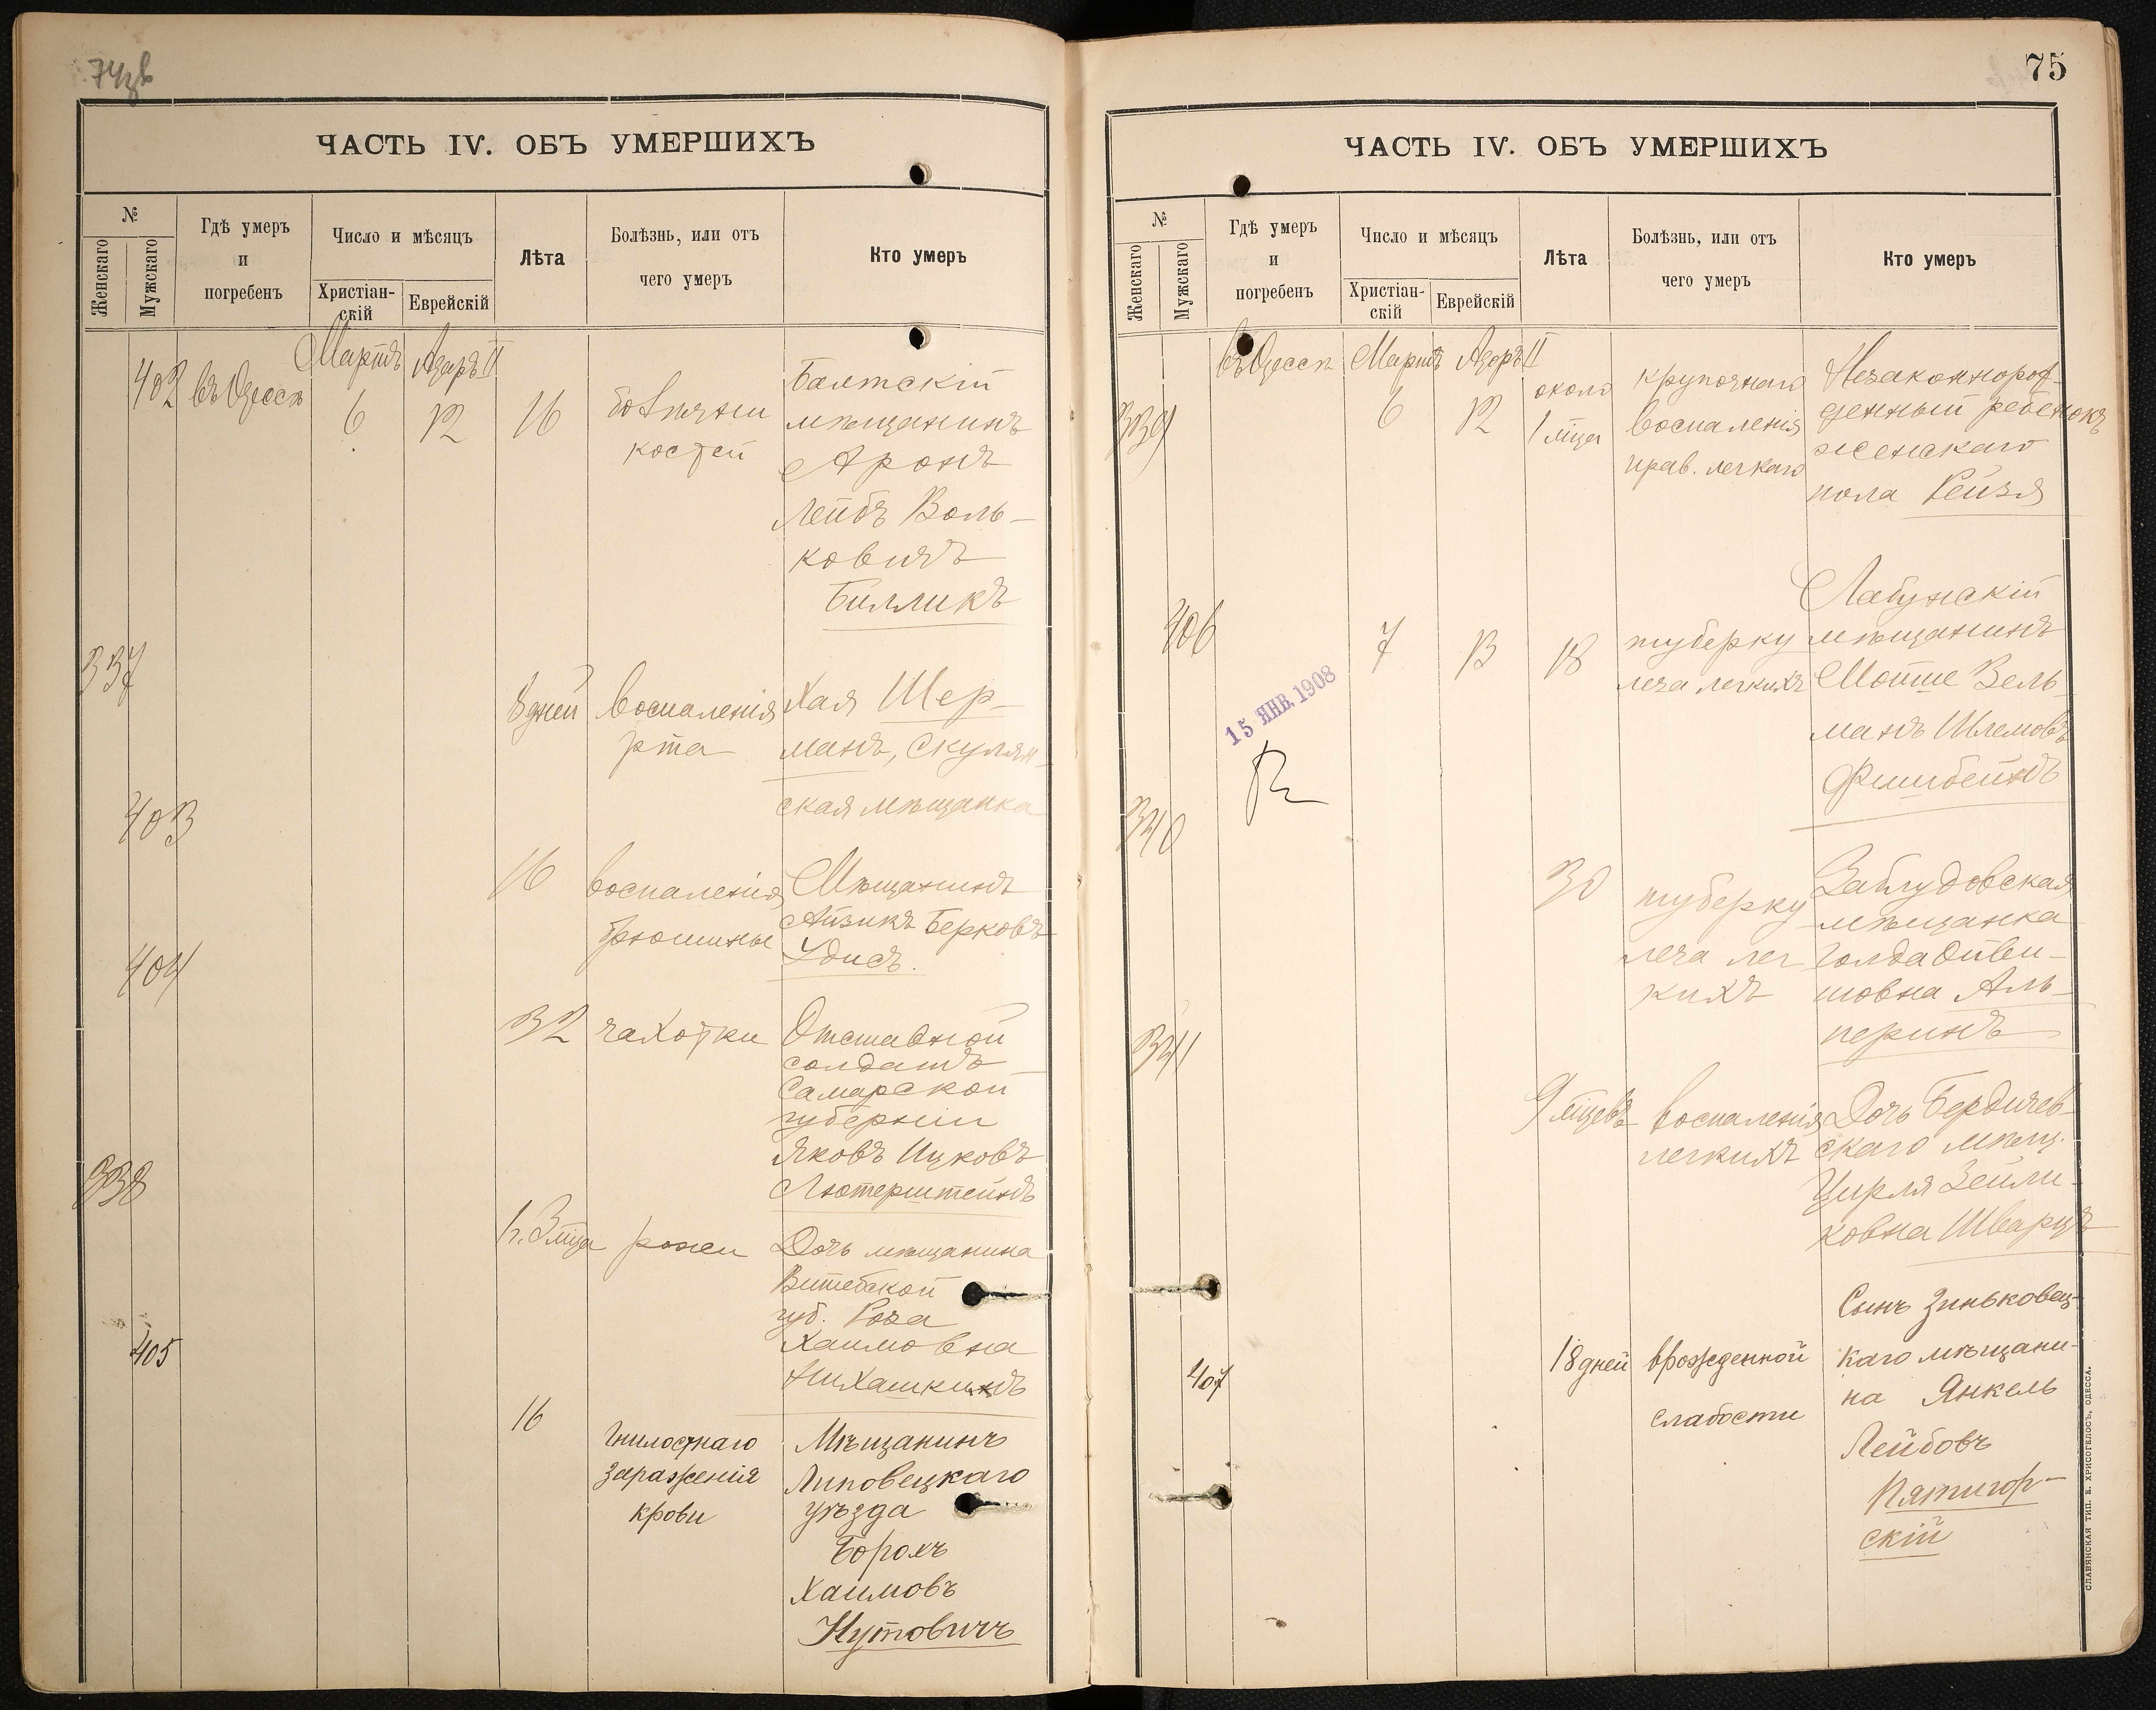 74
ЧАСТЬ IV. ОБЪ УМЕРШИХЪ
№
Женскаго
Мужскаго
Гдѣ умеръ
и
погребенъ
Число и мѣсяцъ
Христіан-
скій
Еврейскій
Лѣта
Болѣзнь, или отъ
чего умеръ
Кто умеръ
Мартъ Адаръ II
402 въ Одессѣ 6 12 16
костей
Балтскій
мѣщанинъ
Аронъ
Лейбъ Воль-
ковичъ
Биликъ
337
8 дней воспаленія
рта
Хая Шер-
манъ, Скулян-
ская мѣщанка
403
16 воспаленія
брюшины
Мѣщанинъ
Айзикъ Берковъ
Удисъ.
404
32 чахотки
Отставной
солдатъ
Самарской
губерніи
Яковъ Ицковъ
Лютерштейнъ
338
рожи
Дочь мѣщанина
Витебской
губ. Роза
Хаимовна
405
16
гнилостнаго
зараженія
крови
Мѣщанинъ
Липовецкаго
уѣзда
Борохъ
Хаимовъ
Нутовичъ
75
ЧАСТЬ IV. ОБЪ УМЕРШИХЪ
№
Женскаго
Мужскаго
Гдѣ умеръ
и
погребенъ
Число и мѣсяцъ
Христіан-
скій
Еврейскій
Лѣта
Болѣзнь, или отъ
чего умеръ
Кто умеръ
въ Одессѣ Мартъ Адаръ II
339 6 12
около
1 мѣца
крупознаго
воспаленія
прав. легкаго
Незаконнорож-
денный ребенокъ
женскаго
пола Рейзя
406 7 13 18
туберку
леза легкихъ
Лабунскій
мѣщанинъ
Мотше Зель-
манъ Шлемовъ
Фишбейнъ
15 ЯНВ. 1908
340
30
туберку
леза лег
кихъ
Заблудовская
мѣщанка
Голда
шовна Аль-
перинъ
341
9 мѣцевъ воспаленія
легкихъ
Дочь Бердичев-
скаго мѣщ.
Цирля Зейли-
ковна Шварцъ
407
18 дней врожденной
слабости
Сынъ Зиньковец-
каго мѣщани-
на Янкель
Лейбовъ
Пятигор-
скій
СЛАВЯНСКАЯ ТИП. Е. ХРИСОГЕЛОСЪ, ОДЕССА.